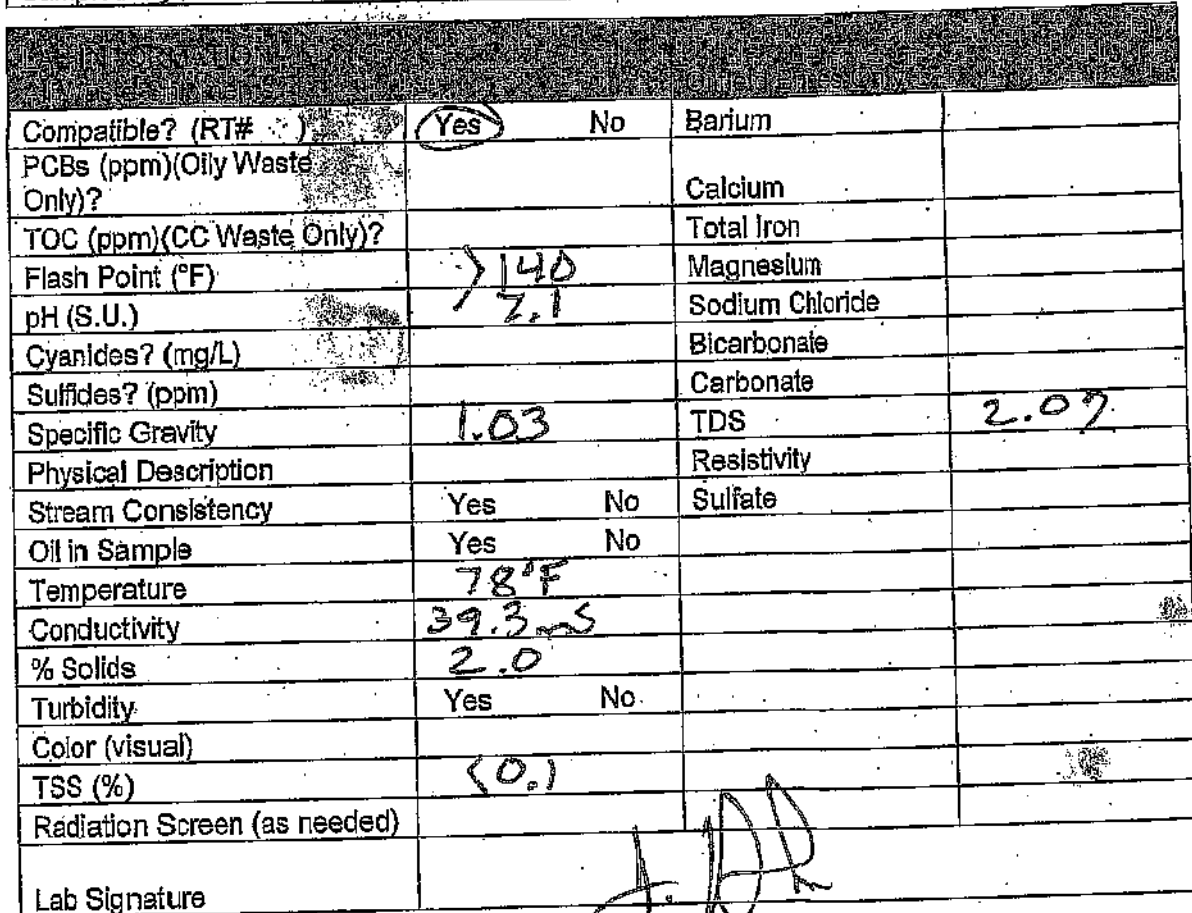 LAB INFORMATION
All Waste Shipments
Compatible? (RT# ) Yes No Barium
PCBs (ppm)(Oily Waste
Only)? Calcium
TOC (ppm)(CC Waste Only)? Total Iron
Flash Point (°F) >140 Magnesium
pH (S.U.) 7.1 Sodium Chloride
Cyanides? (mg/L) Bicarbonate
Sulfides? (ppm) Carbonate
Specific Gravity 1.03 TDS 2.07
Physical Description Resistivity
Stream Consistency Yes No Sulfate
Oil in Sample Yes No
Temperature 78°F
Conductivity 39.3 mS
% Solids 2.0
Turbidity Yes No
Color (visual)
TSS (%) <0.1
Radiation Screen (as needed)
Lab Signature